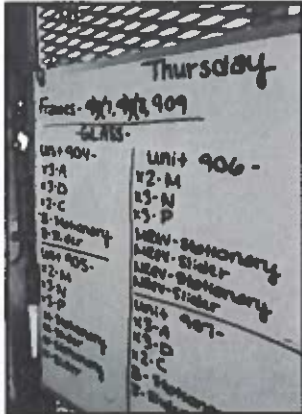 Thursday
Frames - 909
GLASS-
Unit 904-
x3-A
x3-D
x2-C
B-Stationary
B-Slider
Unit 905-
x2-M
x3-N
x3-P
Stationary
Slider
Stationary
Slider
Unit 906-
x2-M
x3-N
x3-P
NEW-Stationary
NEW-Slider
NEW-Stationary
NEW-Slider
Unit 907-
x3-A
x3-D
x2-C
B-Stationary